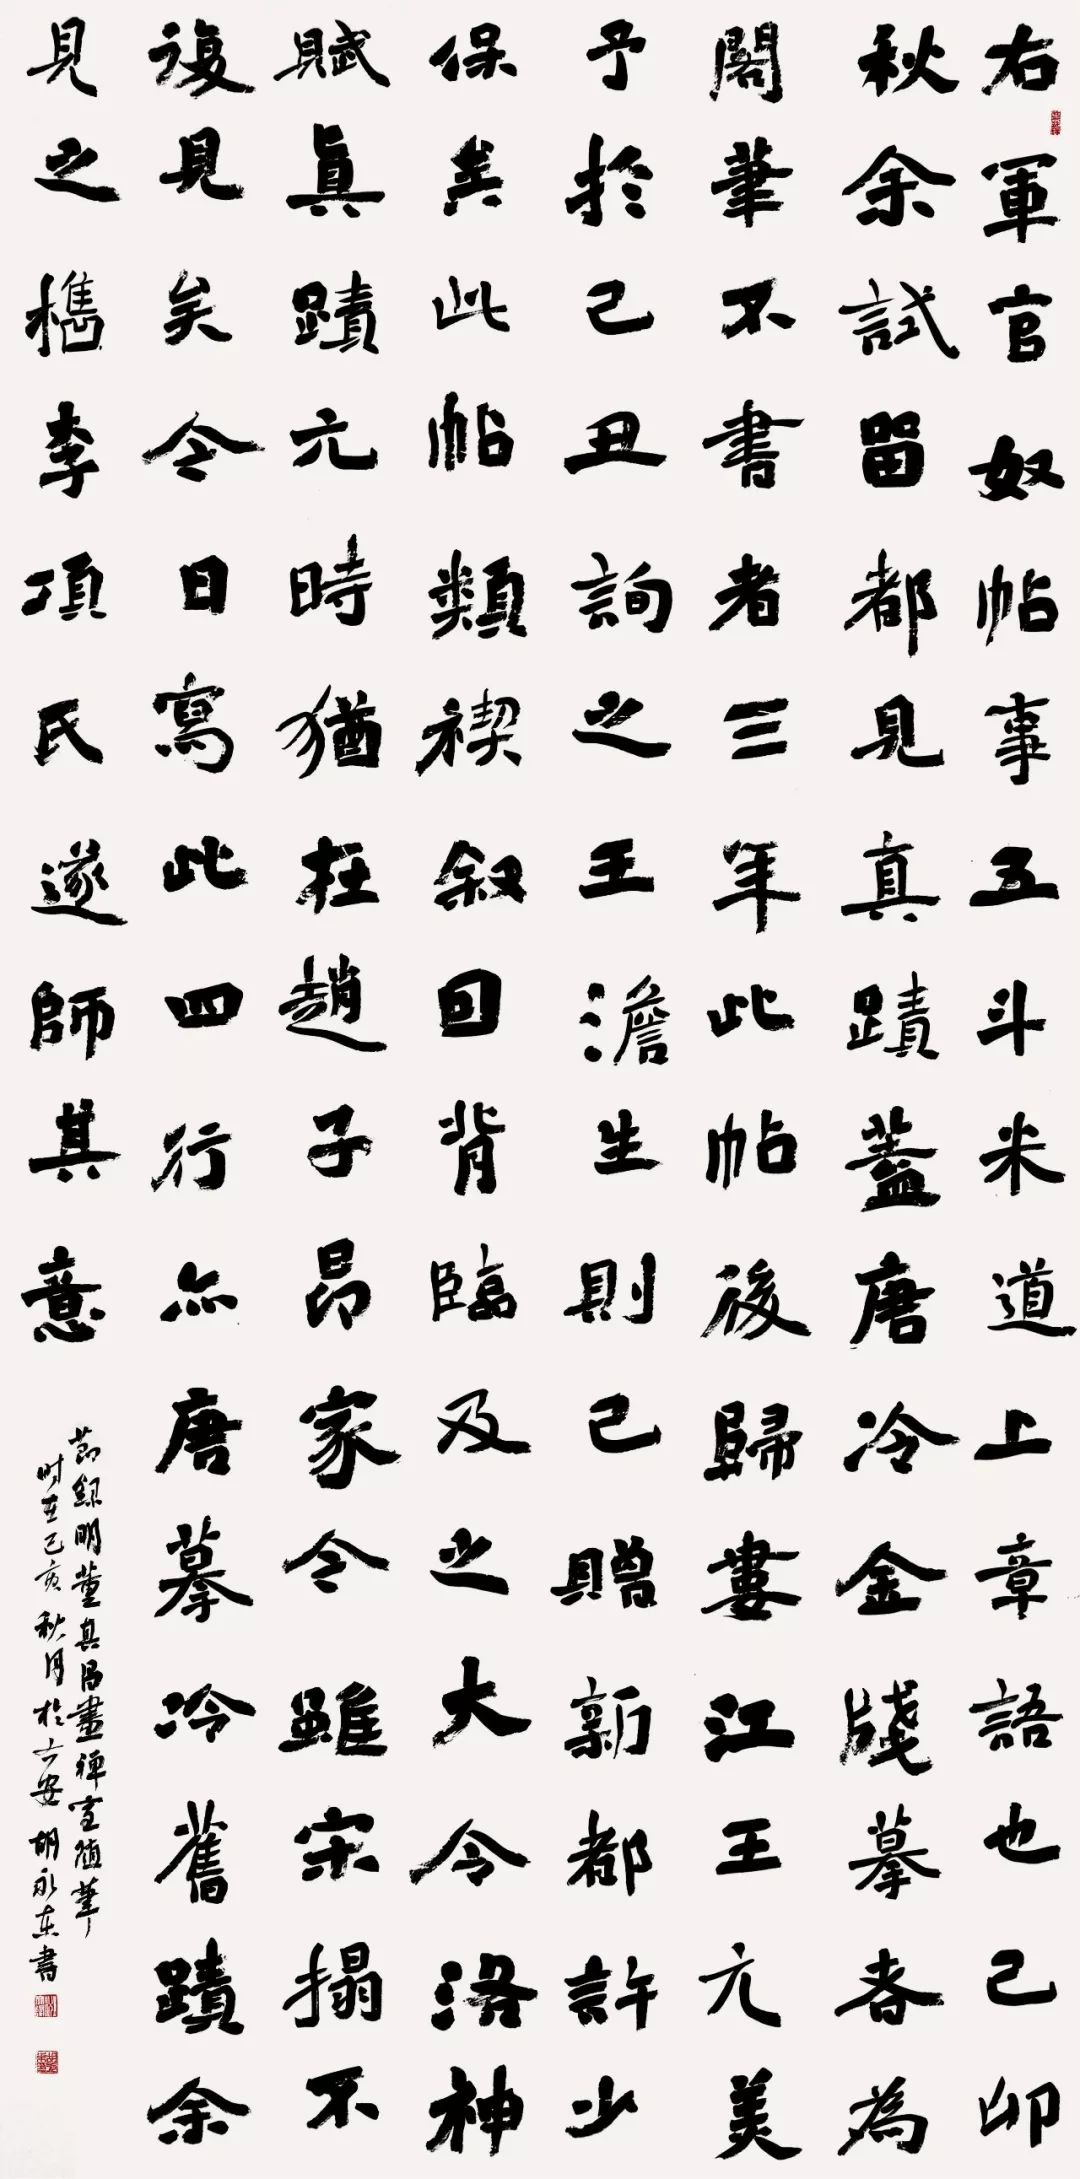 右軍官奴帖事五斗米道上章語也己卯
秋余試留都見真蹟蓋唐冷金牋摹者為
閣筆不書者三年此帖後歸婁江王元美
予於己丑詢之王澹生則已贈新都許少
保矣此帖類禊叙回背臨及之大令洛神
賦真蹟元時猶在趙子昂家今雖宋搨不
復見矣今日寫此四行亦唐摹冷舊蹟余
見之檇李項氏遂師其意
節録明董其昌畫禪室随筆
时在己亥秋月於六安胡永东書